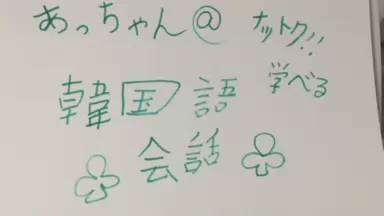 あっちゃん@
ナットク!!
学べる
韓国語
♧会話♧